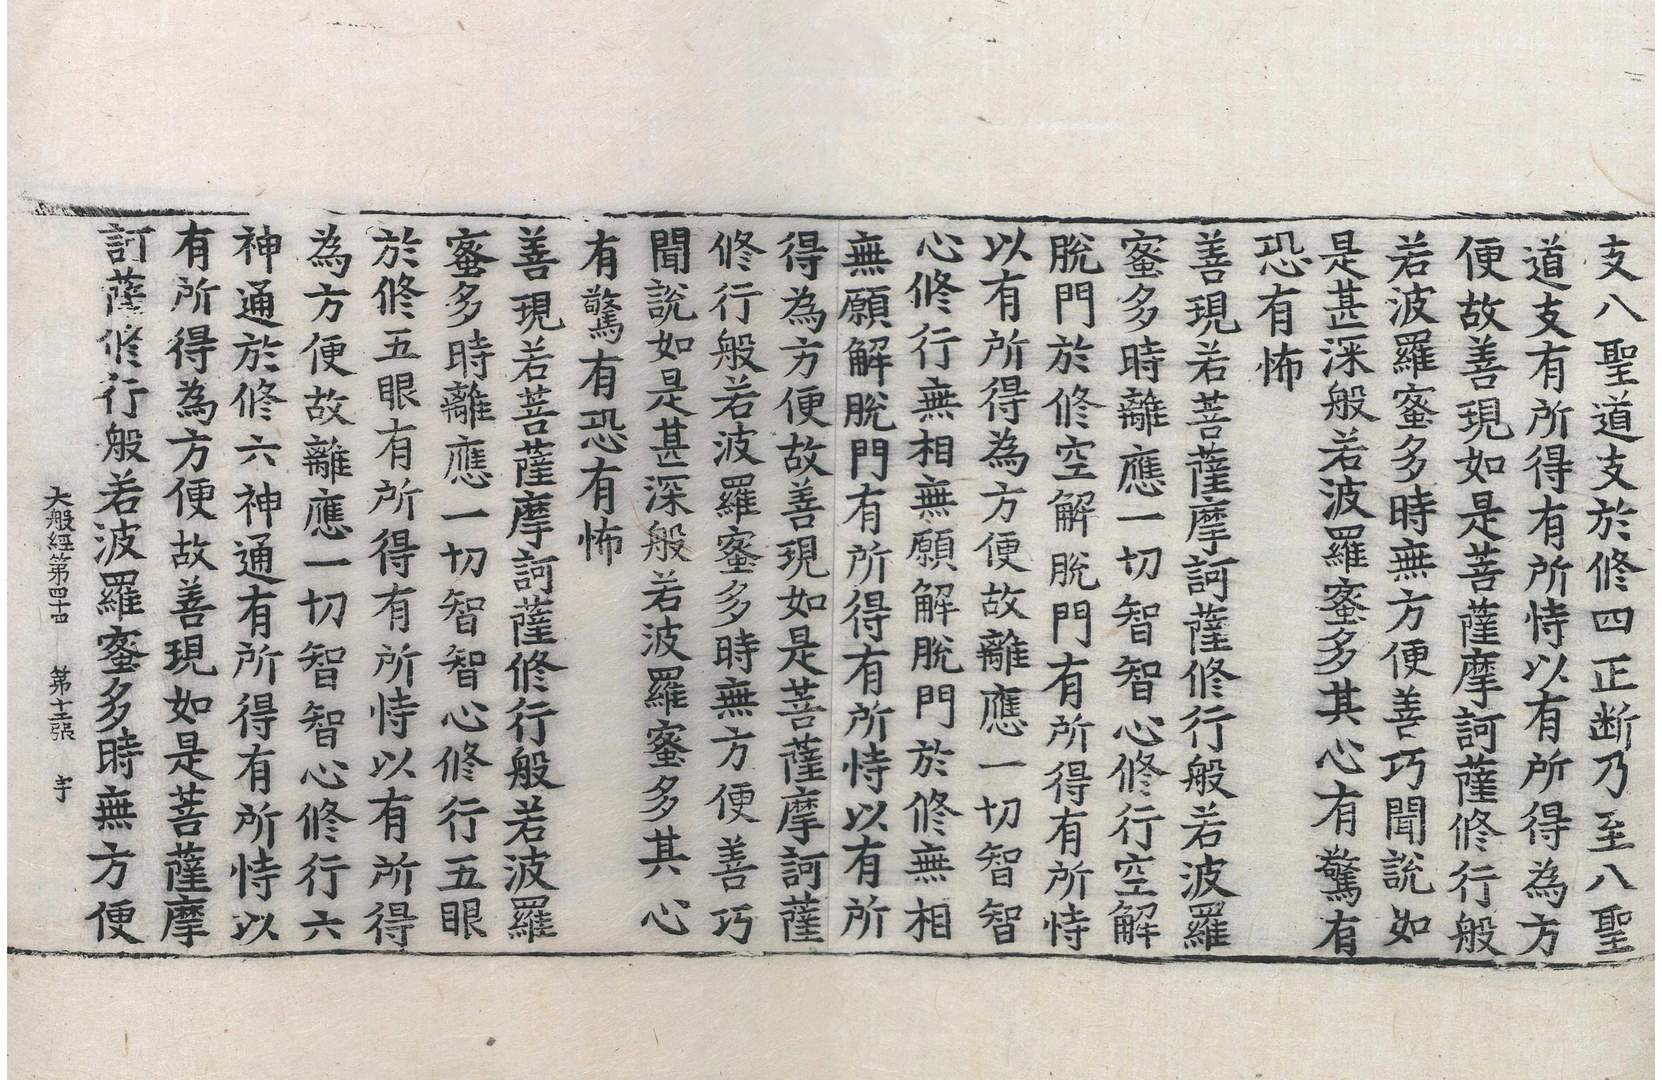 支八聖道支於修四正断乃至八聖
道支有所得有所恃以有所得為方
便故善現如是菩薩摩訶薩修行般
若波羅蜜多時無方便善巧聞說如
是甚深般若波羅蜜多其心有驚有
恐有怖
善現若菩薩摩訶薩修行般若波羅
蜜多時離應一切智智心修行空解
脫門於修空解脫門有所得有所恃
以有所得為方便故離應一切智智
心修行無相無願解脫門於修無相
無願解脫門有所得有所恃以有所
得為方便故善現如是菩薩摩訶薩
修行般若波羅蜜多時無方便善巧
聞說如是甚深般若波羅蜜多其心
有驚有恐有怖
善現若菩薩摩訶薩修行般若波羅
蜜多時離應一切智智心修行五眼
於修五眼有所得有所恃以有所得
為方便故離應一切智智心修行六
神通於修六神通有所得有所恃以
有所得為方便故善現如是菩薩摩
訶薩修行般若波羅蜜多時無方便
大般經第四十四 第十張 宇